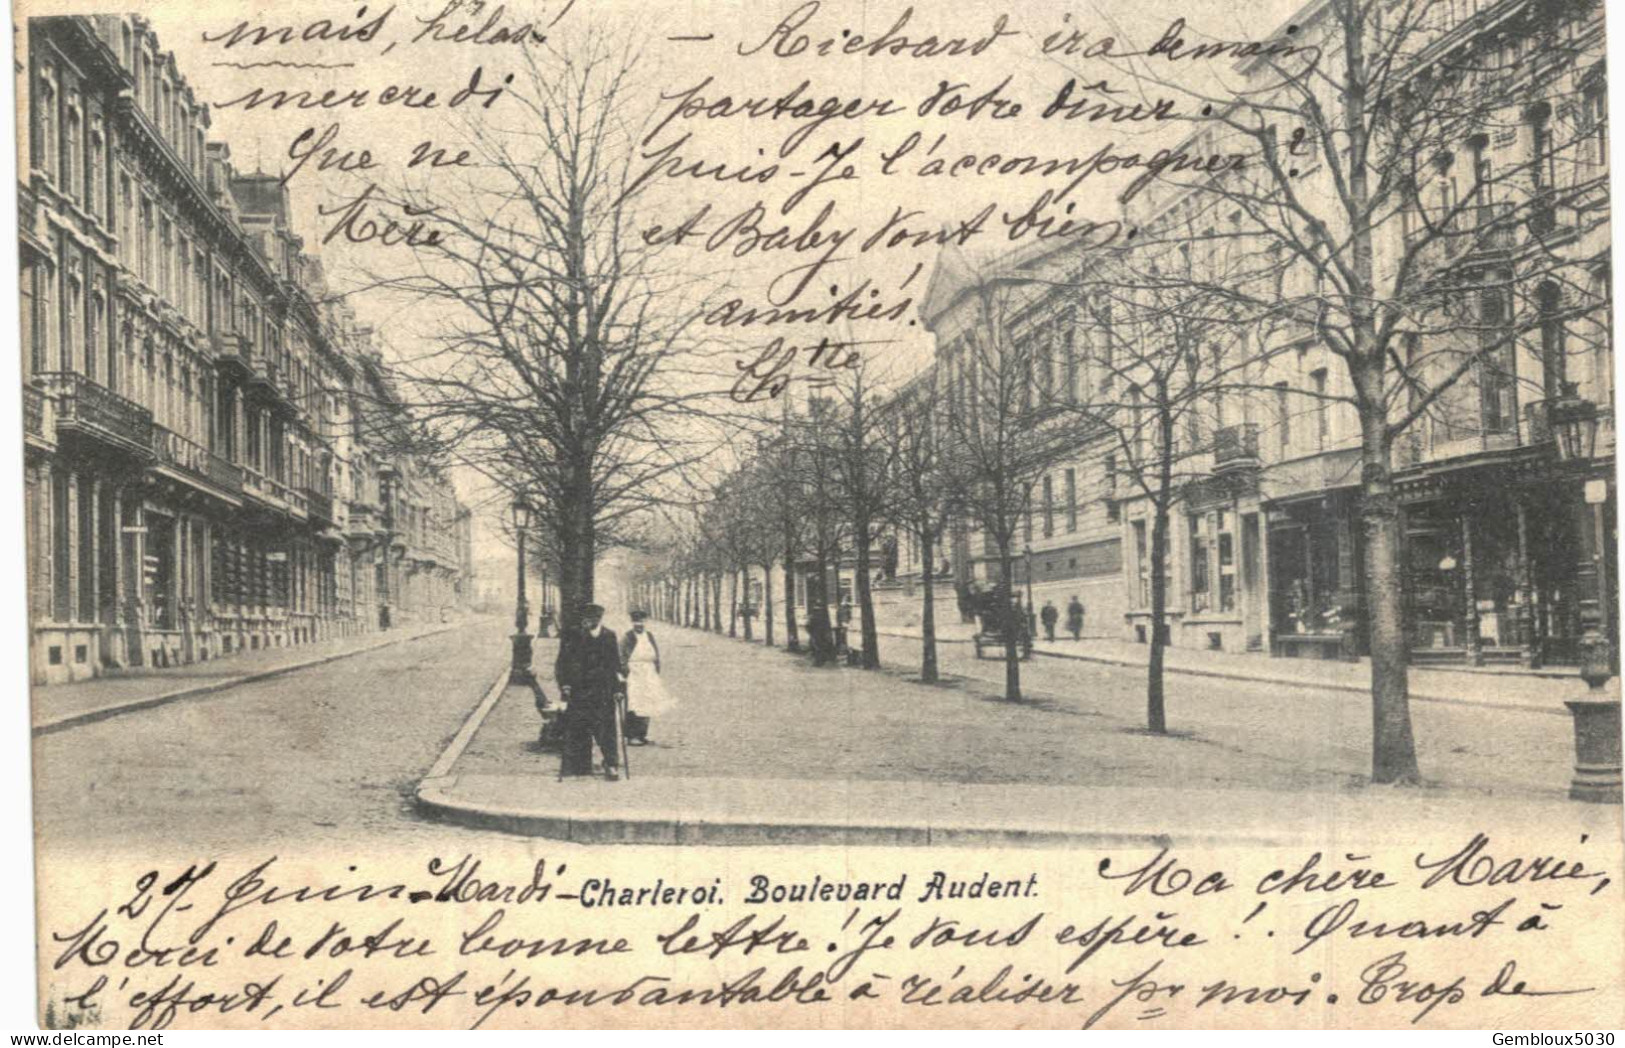 27 Juin - Mardi - Charleroi. Boulevard Audent. Ma chère Marie,
Merci de votre bonne lettre! Je vous espère!. Quant à
l'effort, il est épouvantable à réaliser pr moi. Trop de
mais, hélas!
mercredi
Que ne
- Richard ira demain
partager votre dîner.
puis-Je l'accompagner?
Mère et Baby vont bien.
amitiés.
delcampe.net
Gembloux5030